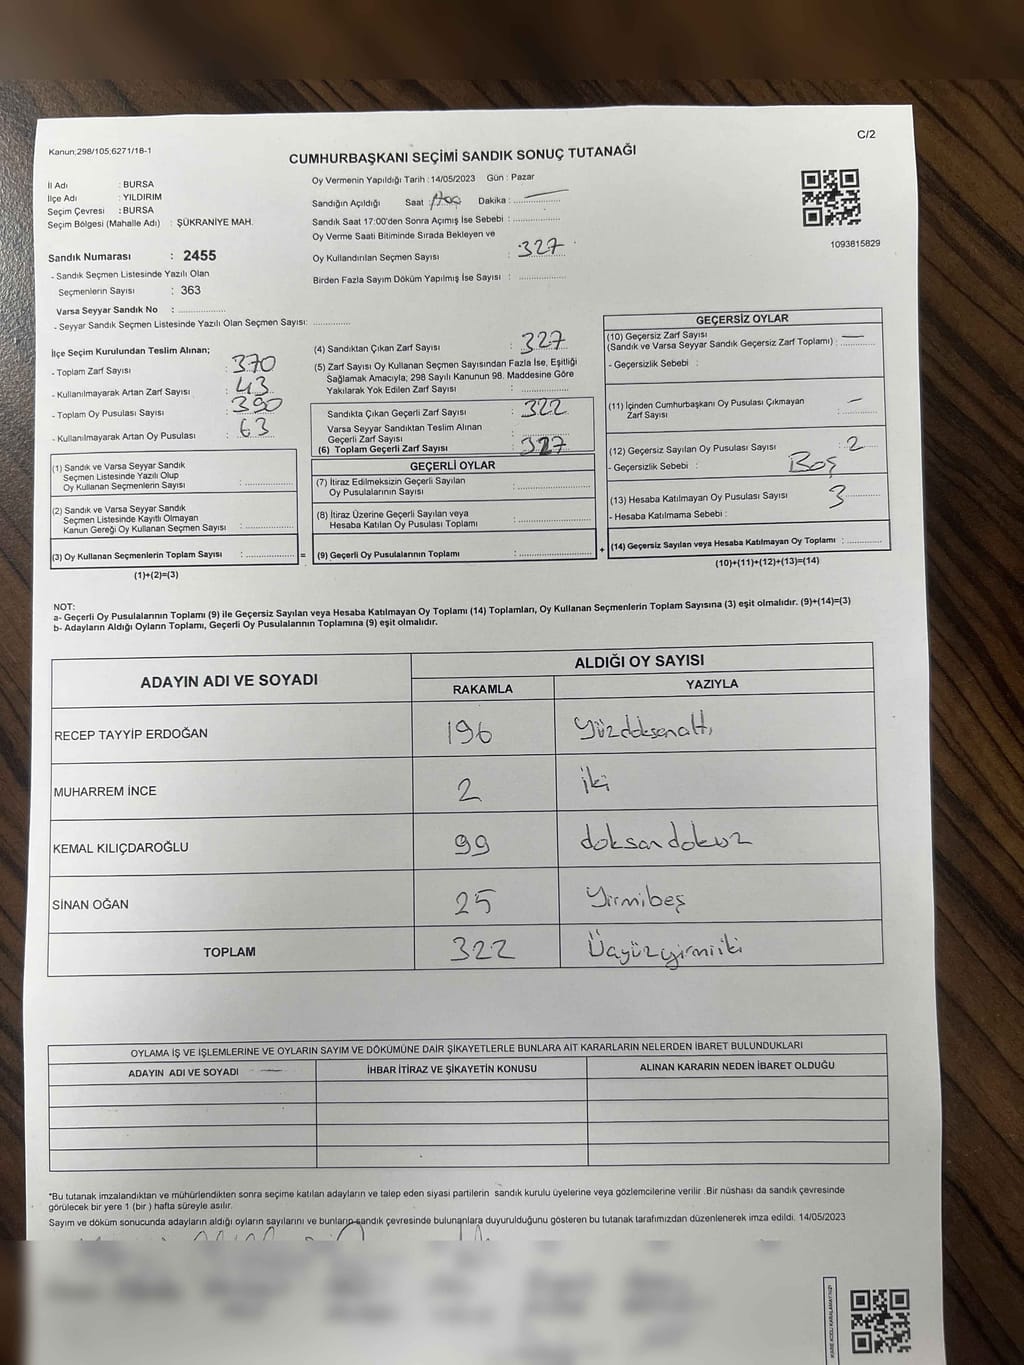 C/2
Kanun;298/105;6271/18-1
CUMHURBAŞKANI SEÇİMİ SANDIK SONUÇ TUTANAĞI
İl Adı : BURSA
İlçe Adı : YILDIRIM
Seçim Çevresi : BURSA
Seçim Bölgesi (Mahalle Adı) : ŞÜKRANİYE MAH.
Sandık Numarası : 2455
- Sandık Seçmen Listesinde Yazılı Olan
Seçmenlerin Sayısı : 363
Varsa Seyyar Sandık No : ....................
- Seyyar Sandık Seçmen Listesinde Yazılı Olan Seçmen Sayısı: ...............
Oy Vermenin Yapıldığı Tarih : 14/05/2023 Gün : Pazar
Sandığın Açıldığı Saat Dakika :
Sandık Saat 17:00'den Sonra Açımış İse Sebebi : ....................
Oy Verme Saati Bitiminde Sırada Bekleyen ve
Oy Kullandırılan Seçmen Sayısı : 327
Birden Fazla Sayım Döküm Yapılmış İse Sayısı : ....................
1093815829
İlçe Seçim Kurulundan Teslim Alınan;
- Toplam Zarf Sayısı : 370
- Kullanılmayarak Artan Zarf Sayısı : 43
- Toplam Oy Pusulası Sayısı : 390
- Kullanılmayarak Artan Oy Pusulası : 63
(1) Sandık ve Varsa Seyyar Sandık
Seçmen Listesinde Yazılı Olup
Oy Kullanan Seçmenlerin Sayısı : ....................
(2) Sandık ve Varsa Seyyar Sandık
Seçmen Listesinde Kayıtlı Olmayan
Kanun Gereği Oy Kullanan Seçmen Sayısı : ....................
(3) Oy Kullanan Seçmenlerin Toplam Sayısı : .................... =
(1)+(2)=(3)
(4) Sandıktan Çıkan Zarf Sayısı : 327
(5) Zarf Sayısı Oy Kullanan Seçmen Sayısından Fazla İse, Eşitliği
Sağlamak Amacıyla; 298 Sayılı Kanunun 98. Maddesine Göre
Yakılarak Yok Edilen Zarf Sayısı : ....................
Sandıkta Çıkan Geçerli Zarf Sayısı : 322
Varsa Seyyar Sandıktan Teslim Alınan
Geçerli Zarf Sayısı : ....................
(6) Toplam Geçerli Zarf Sayısı : 327
GEÇERLİ OYLAR
(7) İtiraz Edilmeksizin Geçerli Sayılan
Oy Pusulalarının Sayısı : ....................
(8) İtiraz Üzerine Geçerli Sayılan veya
Hesaba Katılan Oy Pusulası Toplamı : ....................
(9) Geçerli Oy Pusulalarının Toplamı : .................... +
GEÇERSİZ OYLAR
(10) Geçersiz Zarf Sayısı —
(Sandık ve Varsa Seyyar Sandık Geçersiz Zarf Toplamı) : ..........
- Geçersizlik Sebebi :
(11) İçinden Cumhurbaşkanı Oy Pusulası Çıkmayan —
Zarf Sayısı : ..........
(12) Geçersiz Sayılan Oy Pusulası Sayısı : 2
- Geçersizlik Sebebi : Boş
(13) Hesaba Katılmayan Oy Pusulası Sayısı : 3
- Hesaba Katılmama Sebebi :
(14) Geçersiz Sayılan veya Hesaba Katılmayan Oy Toplamı : ..........
(10)+(11)+(12)+(13)=(14)
NOT:
a- Geçerli Oy Pusulalarının Toplamı (9) ile Geçersiz Sayılan veya Hesaba Katılmayan Oy Toplamı (14) Toplamları, Oy Kullanan Seçmenlerin Toplam Sayısına (3) eşit olmalıdır. (9)+(14)=(3)
b- Adayların Aldığı Oyların Toplamı, Geçerli Oy Pusulalarının Toplamına (9) eşit olmalıdır.
ADAYIN ADI VE SOYADI ALDIĞI OY SAYISI
RAKAMLA YAZIYLA
RECEP TAYYİP ERDOĞAN 196 Yüzdoksanaltı
MUHARREM İNCE 2 iki
KEMAL KILIÇDAROĞLU 99 doksan dokuz
SİNAN OĞAN 25 Yirmibeş
TOPLAM 322 Üçyüzyirmiiki
OYLAMA İŞ VE İŞLEMLERİNE VE OYLARIN SAYIM VE DÖKÜMÜNE DAİR ŞİKAYETLERLE BUNLARA AİT KARARLARIN NELERDEN İBARET BULUNDUKLARI
ADAYIN ADI VE SOYADI — İHBAR İTİRAZ VE ŞİKAYETİN KONUSU ALINAN KARARIN NEDEN İBARET OLDUĞU
*Bu tutanak imzalandıktan ve mühürlendikten sonra seçime katılan adayların ve talep eden siyasi partilerin sandık kurulu üyelerine veya gözlemcilerine verilir .Bir nüshası da sandık çevresinde
görülecek bir yere 1 (bir ) hafta süreyle asılır.
Sayım ve döküm sonucunda adayların aldığı oyların sayılarını ve bunların sandık çevresinde bulunanlara duyurulduğunu gösteren bu tutanak tarafımızdan düzenlenerek imza edildi. 14/05/2023
KARE KODU KARALAMAYINIZ!